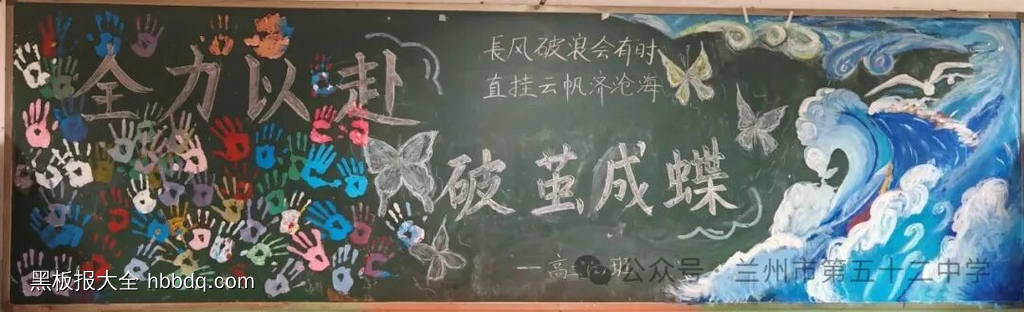 全力以赴
長风破浪会有时
直挂云帆济沧海
破茧成蝶
一高 班
公众号 · 兰州市第五十二中学
黑板报大全 hbbdq.com